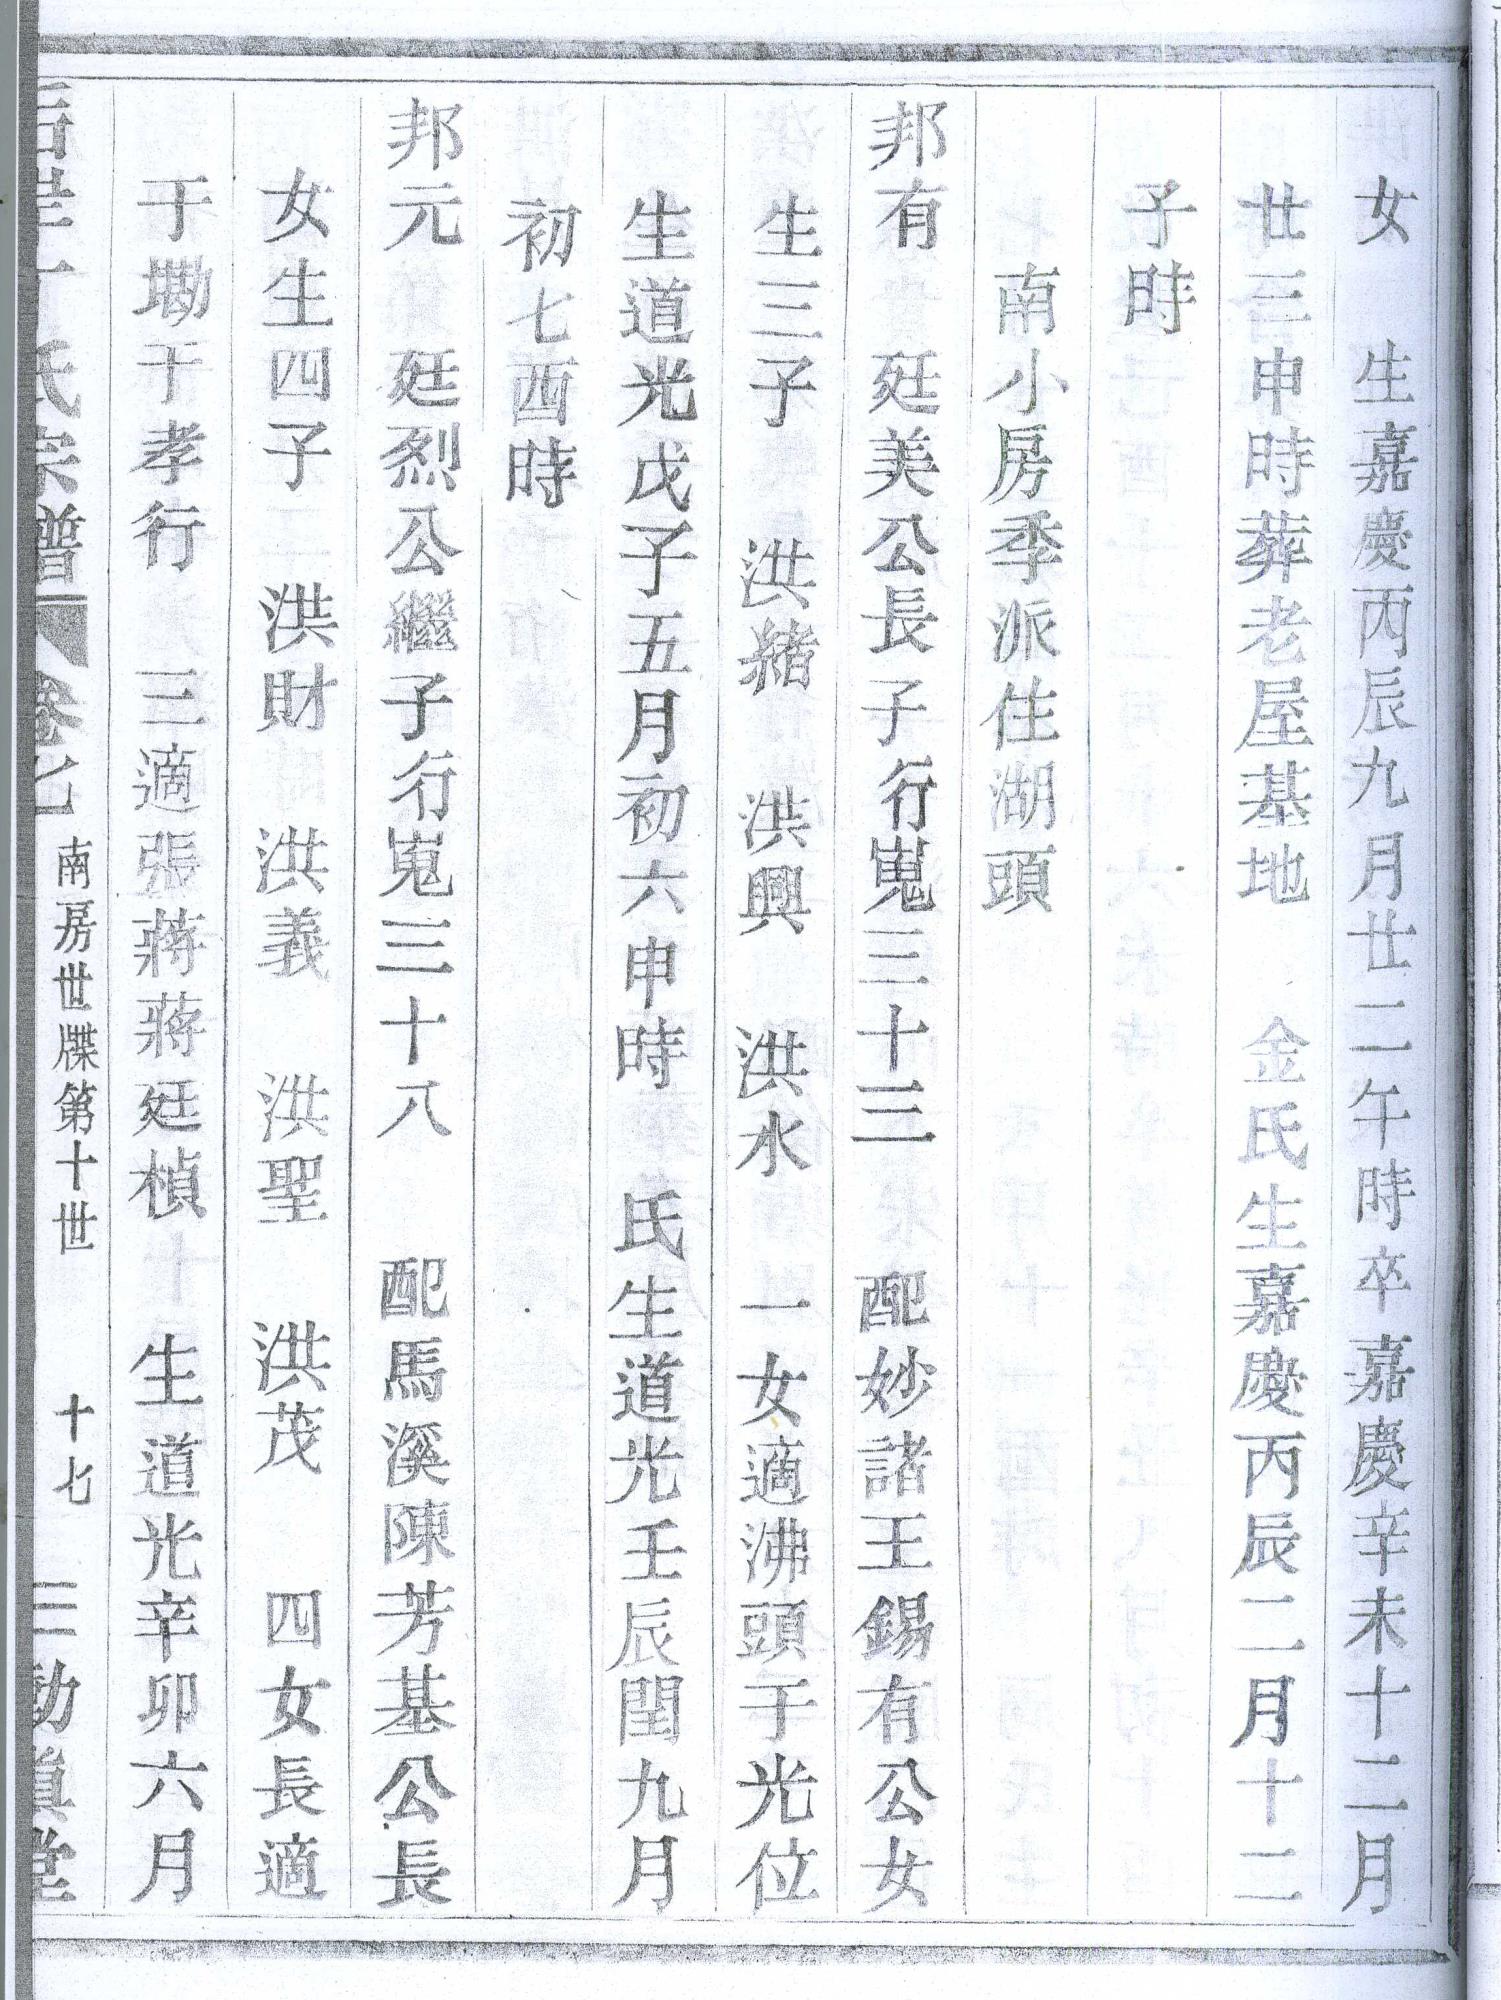 女　生嘉慶丙辰九月廿二午時卒嘉慶辛未十二月
廿三申時葬老屋基地　金氏生嘉慶丙辰二月十二
子時
南小房季派住湖頭
邦有　廷美公長子行嵬三十三　配妙諸王錫有公女
生三子　洪緒　洪興　洪水　一女適沸頭于光位
生道光戊子五月初六申時　氏生道光壬辰閏九月
初七酉時
邦元　廷烈公繼子行嵬三十八　配馬溪陳芳基公長
女生四子　洪財　洪義　洪聖　洪茂　四女長適
于墈于孝行　三適張蔣蔣廷楨　生道光辛卯六月
氏宗譜　卷七　南房世牒第十世　十七